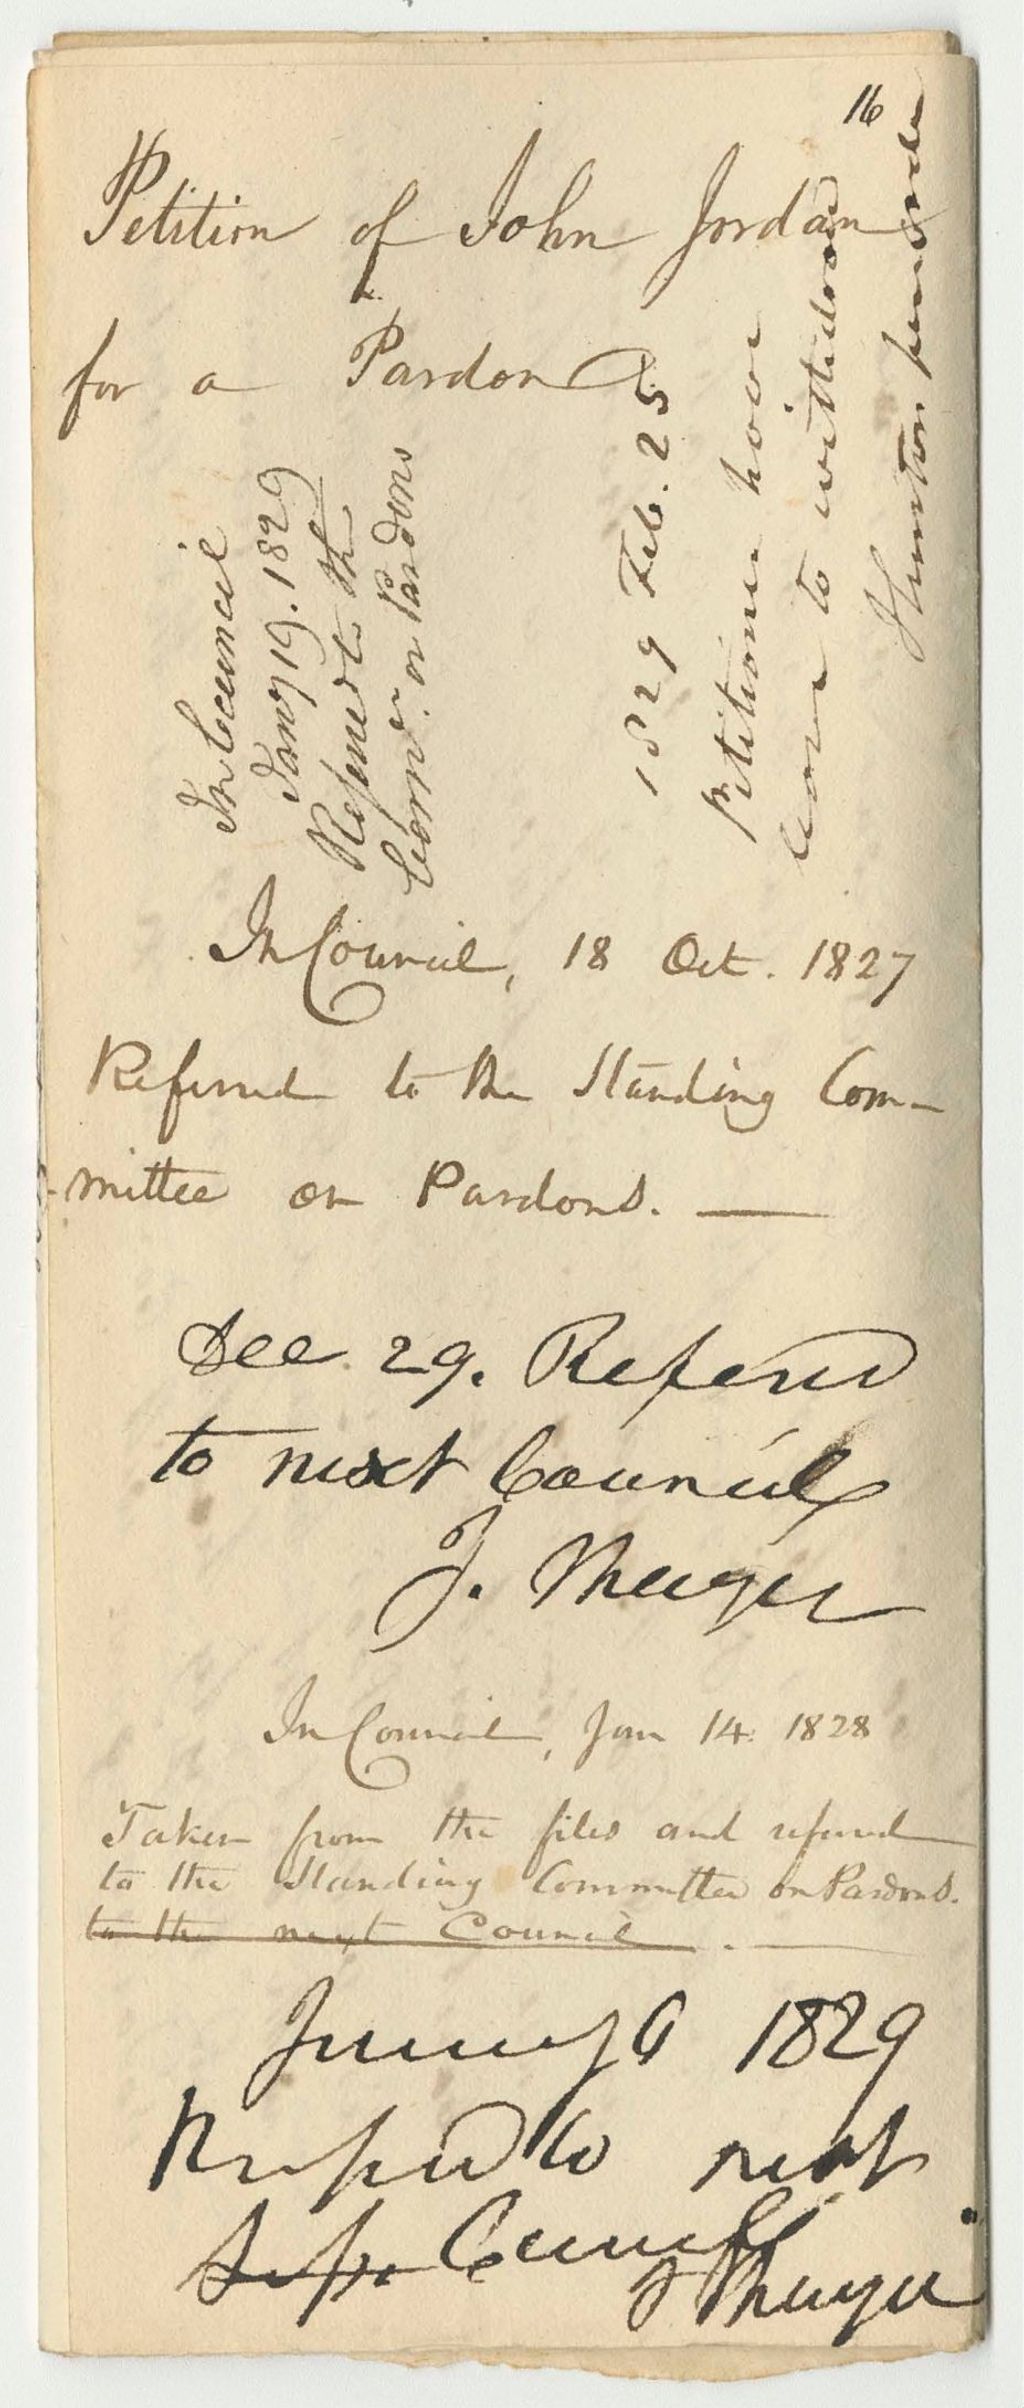 16
Petition of John Jordan
for a Pardon
In Council
Jany 19. 1829
Referred to the
Comm. on Pardons
1829 Feb. 25
Petitioner have
leave to withdraw
Hunton
In Council, 18 Oct. 1827
Referred to the Standing Com-
-mittee on Pardons.
Dec 29. Referred
to next Council
J. Thayer
In Council, Jan 14. 1828
Taken from the files and referred
to the Standing Committee on Pardons.
to the next Council.
January 6 1829
Referred to next
Council
J Thayer